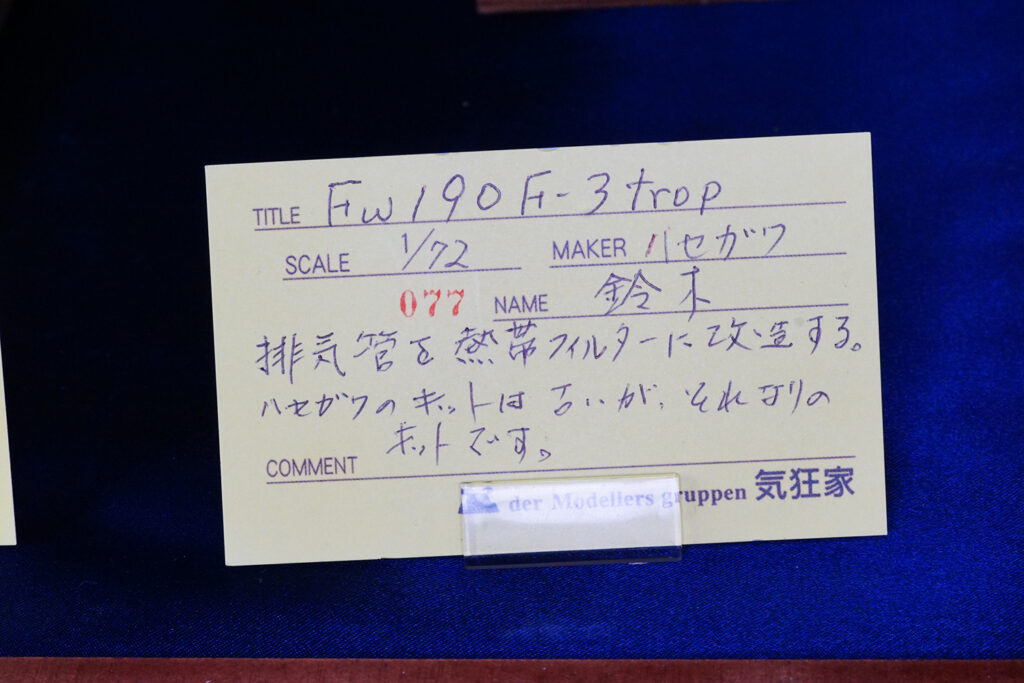 TITLE Fw190 F-3 trop
SCALE 1/72 MAKER ハセガワ
077 NAME 鈴木
排気管を熱帯フィルターに改造する。
ハセガワのキットは古いが、それなりの
キットです。
COMMENT
der Modellers gruppen 気狂家